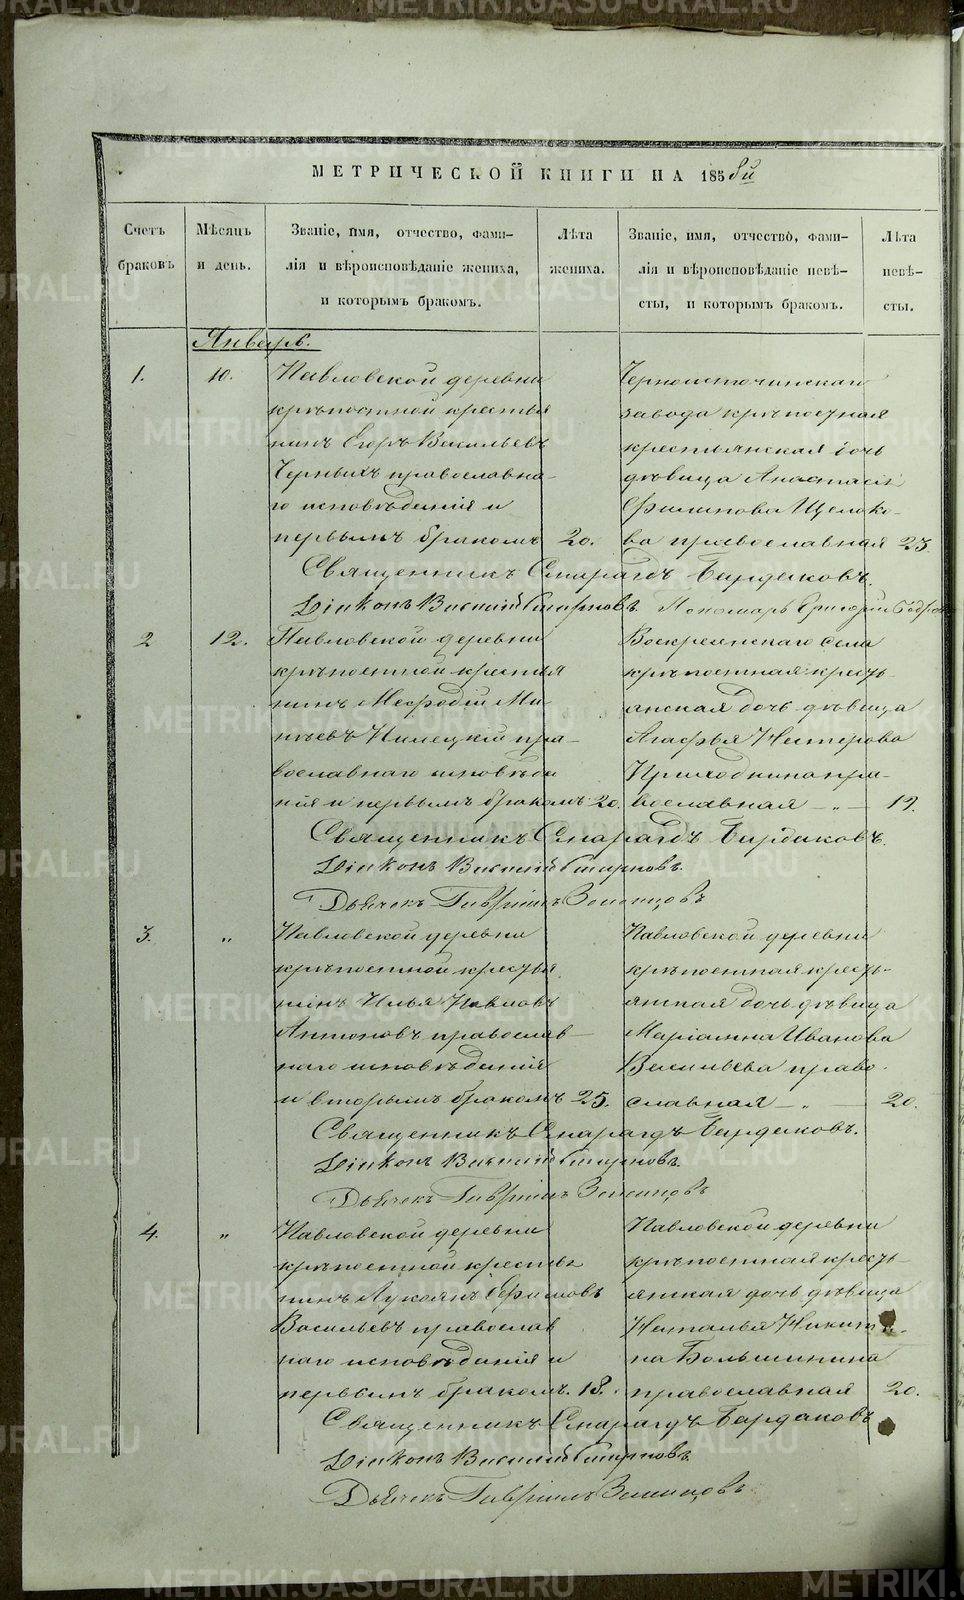 МЕТРИЧЕСКОЙ КНИГИ НА 1858й
Счетъ браковъ.
Мѣсяцъ и день.
Званіе, имя, отчество, фами-
лія и вѣроисповѣданіе жениха,
и которымъ бракомъ.
Лѣта жениха.
Званіе, имя, отчество, фами-
лія и вѣроисповѣданіе невѣ-
сты, и которымъ бракомъ.
Лѣта невѣ-
сты.
Январь.
1. 10.
Павловской деревни
крѣпостной крестья
нинъ Егоръ Васильевъ
Черныхъ православна-
го исповѣданія и
первымъ бракомъ 20.
Черноисточинскаго
завода крѣпостная
крестьянская дочь
дѣвица Анастасія
Филипова Щелоко-
ва православная 23
Священникъ Смарагдъ Бирдюковъ.
Діаконъ Василій Смирновъ. Пономарь Григорій
2 12.
Павловской деревни
крѣпостной крестья
нинъ Мефодій Ми
нѣевъ пра-
вославнаго исповѣда
нія и первымъ бракомъ 20.
Воскресенскаго села
крѣпостная кресть-
янская дочь дѣвица
Агафья Нестерова
Приходкина пра-
вославная — „ — 19.
Священникъ Смарагдъ Бирдюковъ.
Діаконъ Василій Смирновъ.
Дьячекъ Гавріилъ
3. „
Павловской деревни
крѣпостной крестья
нинъ Илья Павловъ
Антоновъ православ-
наго исповѣданія
и вторымъ бракомъ 25.
Павловской деревни
крѣпостная кресть-
янская дочь дѣвица
Маріанна Иванова
Васильева право-
славная — „ — 20.
Священникъ Смарагдъ Бирдюковъ.
Діаконъ Василій Смирновъ.
Дьячекъ Гавріилъ
4. „
Павловской деревни
крѣпостной крестья
нинъ Лукоянъ Ефимовъ
Васильевъ православ
наго исповѣданія и
первымъ бракомъ. 18.
Павловской деревни
крѣпостная кресть-
янская дочь дѣвица
Наталья Никити-
на Большинина
православная 20.
Священникъ Смарагдъ Бирдюковъ
Діаконъ Василій Смирновъ
Дьячекъ Гавріилъ
METRIKI.GASO-URAL.RU